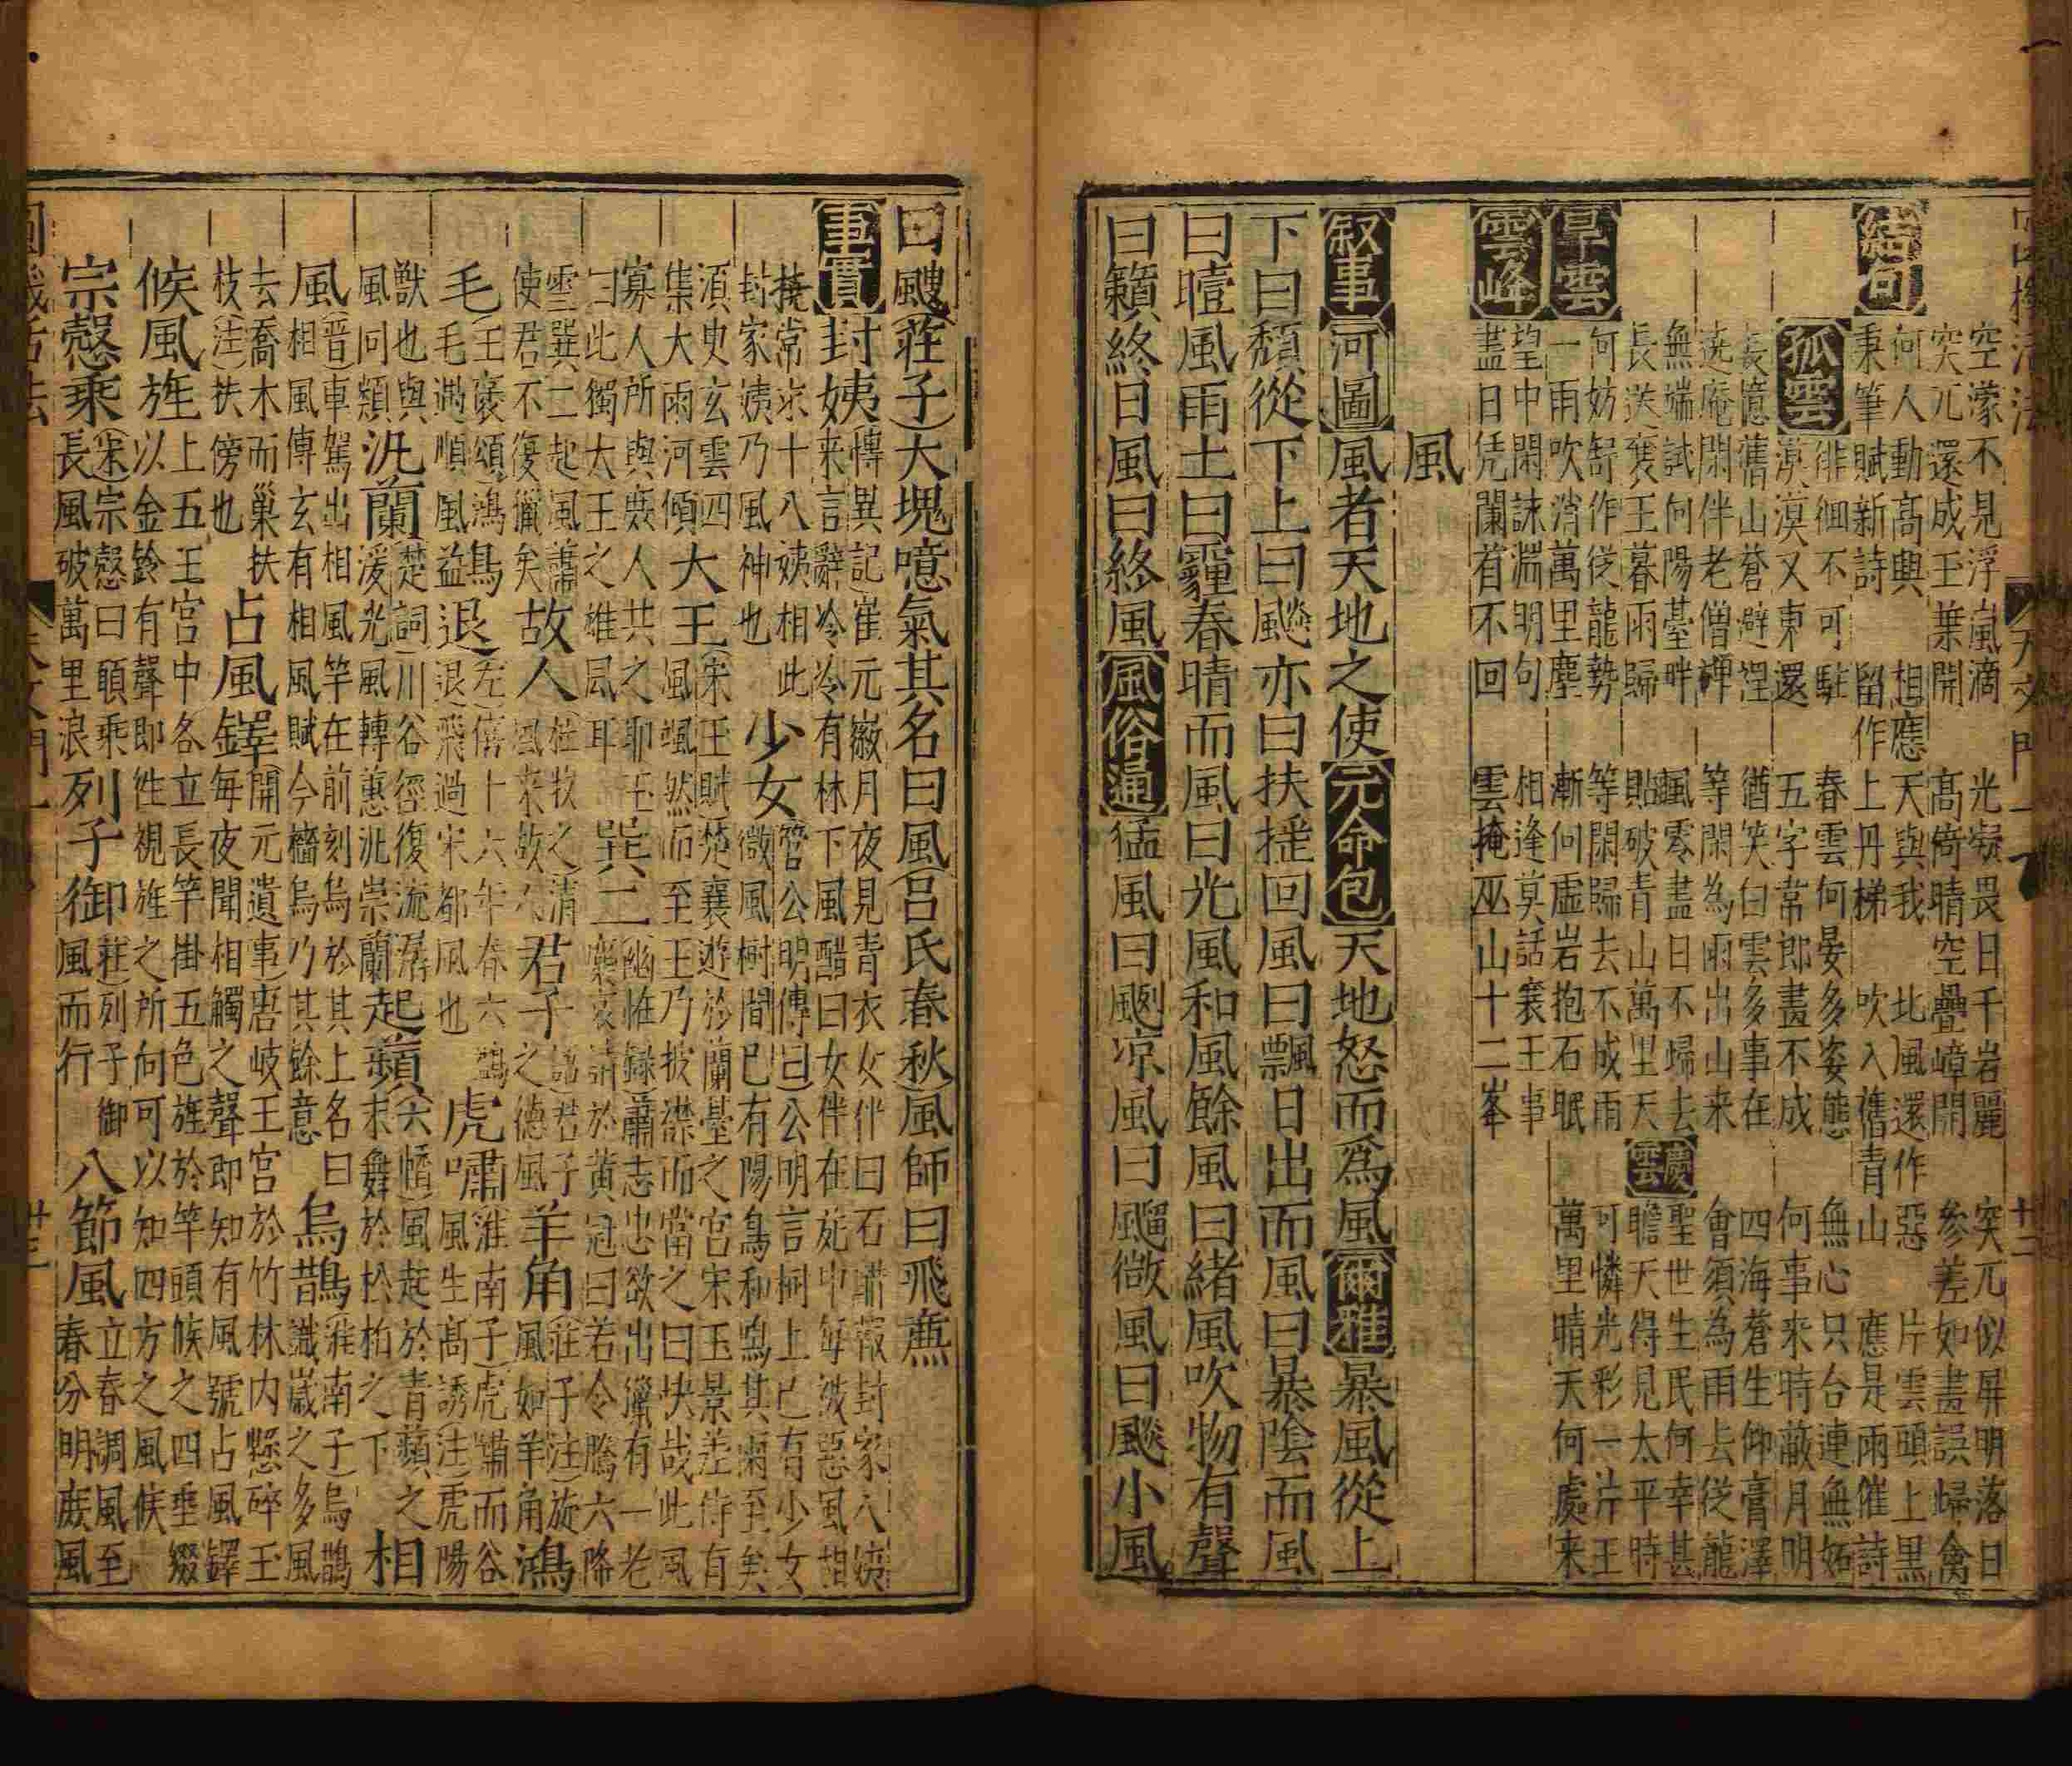 結句
空濛不見浮嵐滴　光凝畏日千岩麗　突兀似屏明落日
突兀還成玉葉開　高倚晴空疊嶂開　參差如畫誤歸禽
何人動高興　相應天與我　北風還作惡　片雲頭上黑
秉筆賦新詩　留作上丹梯　吹入舊青山　應是雨催詩
孤雲
徘徊不可駐　春雲何晏多姿態　無心只台連無妬
漠漠又東還　五字常郎畫不成　何事来時敵月明
長憶舊山蒼避裡　猶笑白雲多事在　四海蒼生仰膏澤
遶庵閑伴老僧禪　等閑為雨出山来　會須為雨去從龍
慶雲
無端試向陽臺畔　飄零盡日不歸去　聖世生民何幸甚
長送襄王暮雨歸　點破青山萬里天　瞻天得見太平時
旱雲
何妨暫作從龍勢　等閑歸去不成雨　可憐光彩一片玉
一雨吹消萬里塵　漸向虛岩抱石眠　萬里晴天何處来
雲峰
望中閑詠淵明句　相逢莫話襄王事
盡日凭闌首不回　雲掩巫山十二峯
風
敘事 河圖 風者天地之使 元命包 天地怒而爲風 爾雅 暴風從上
下曰頹從下上曰飇亦曰扶揺回風曰飄日出而風曰暴陰而風
曰曀風雨土曰霾春晴而風曰光風和風餘風曰緒風吹物有聲
曰籟終日風曰終風 風俗通 猛風曰颲凉風曰飀微風曰飉小風
曰颼(莊子)大塊噫氣其名曰風(呂氏春秋)風師曰飛廉
事實 封姨(博異記)崔元徽月夜見青衣女伴曰石醋醋報封家八姨
来言辭冷冷有林下風醋曰女伴在苑中每被惡風相
撓常求十八姨相此
封家姨乃風神也 少女(管公明傳曰)公明言樹上已有少女
微風樹間已有陽鳥和鳴其雨至矣
湏臾玄雲四
集大雨河傾 大王(宋玉賦)楚襄遊於蘭臺之宮宋玉景差侍有
風颯然而至王乃披襟而當之曰快哉此風
寡人所與庶人共之耶玉
曰此獨大王之雄風耳 巽二(幽恠録)蕭志忠欲出獵有一老
麋哀請於黃冠曰若令滕六降
雪巽二起風蕭
使君不復獵矣 故人(杜牧之)清
風来故人 君子(語)君子
之德風 羊角(莊子注)旋
風如羊角 鴻
毛(王褒頌)鴻
毛遇順風 鳥退(左)僖十六年春六鷁
退飛過宋都風也 虎嘯(淮南子)虎嘯而谷
風生高誘(注)虎陽
獸也與
風同類 汎蘭(楚詞)川谷徑復流潺
湲光風轉蕙汎崇蘭 起蘋(六幡)風起於青蘋之
末舞於松柏之下 相
風(晉)車駕出相風竿在前刻烏於其上名曰
相風傳玄有相風賦今檣烏乃其餘意 烏鵲(淮南子)烏鵲
識歲之多風
去喬木而巢扶
枝(注)扶傍也 占風鐸(開元遺事)唐岐王宮於竹林内懸碎玉
每夜聞相觸之聲即知有風號占風鐸
候風旌上五王宮中各立長竿掛五色旌於竿頭候之四垂綴
以金鈴有聲即徃視旌之所向可以知四方之風候
宗慤乘(宋)宗慤曰願乘
長風破萬里浪 列子御(莊)列子御
風而行 八節風立春調風至
春分明庶風